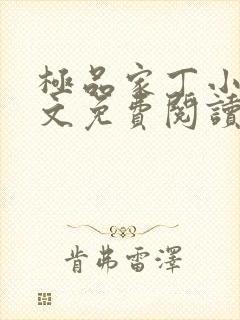 極品家丁小
文免費閱讀
肯弗雷澤